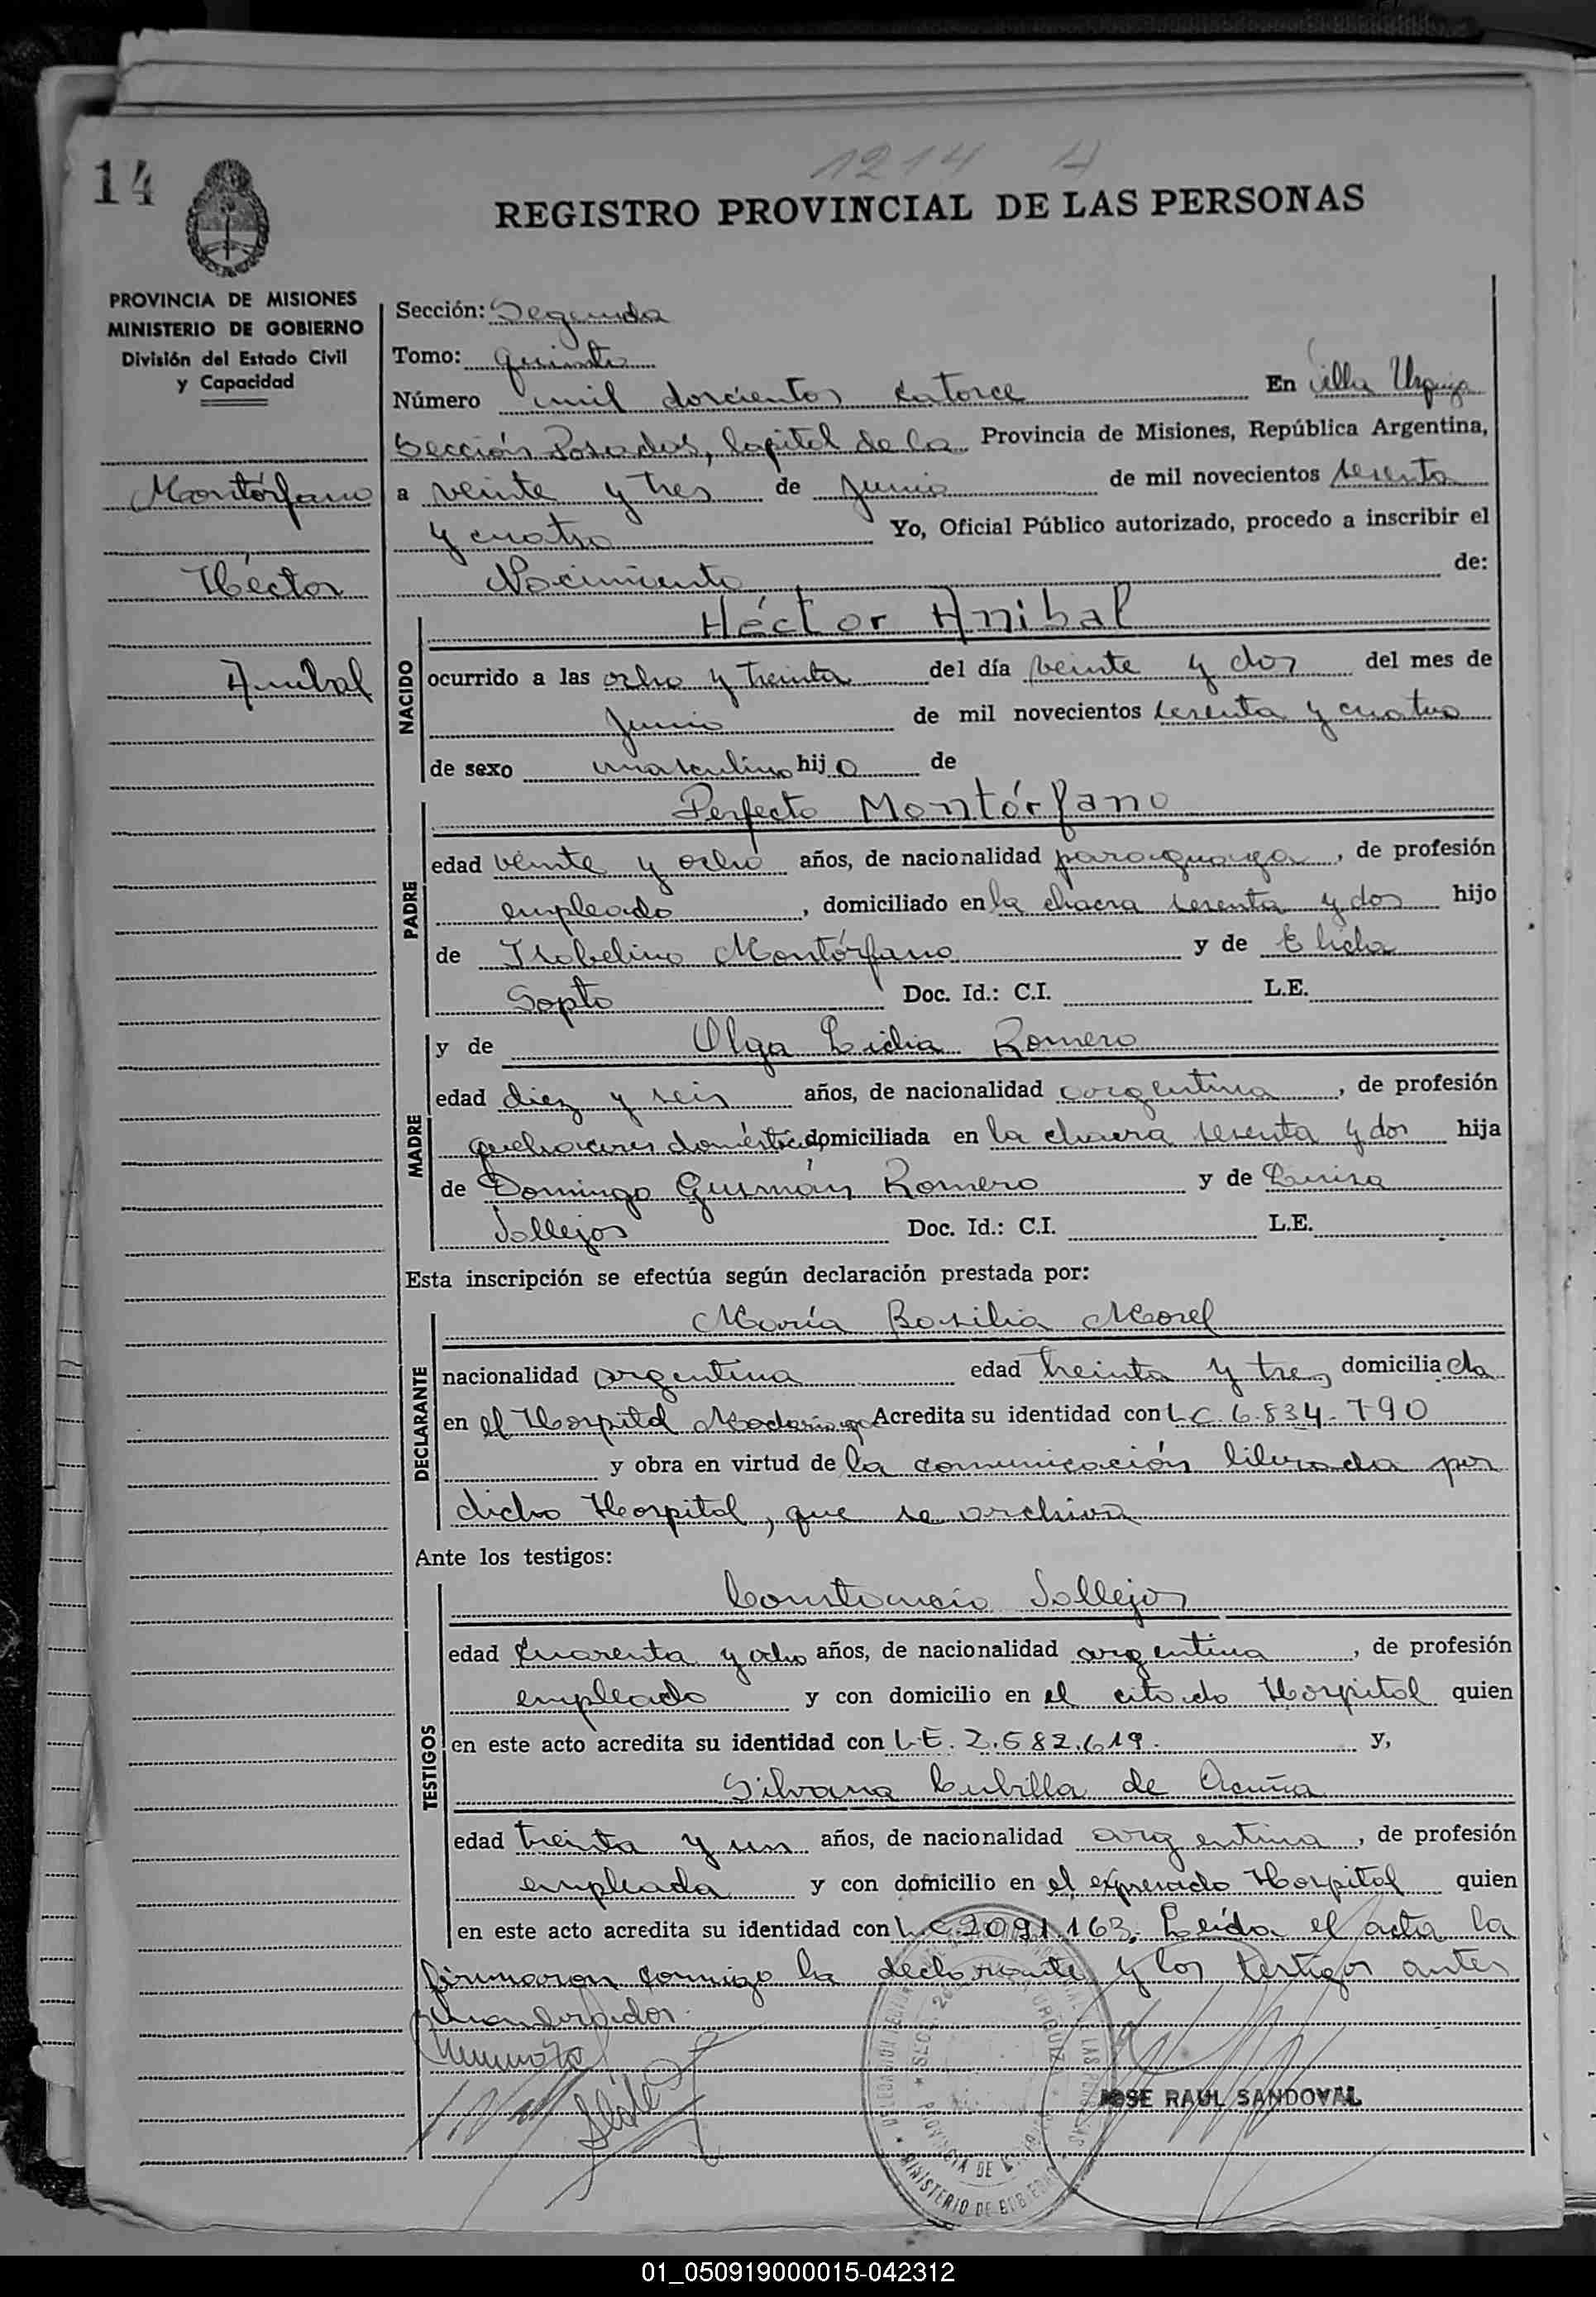 14
1214 4
REGISTRO PROVINCIAL DE LAS PERSONAS
PROVINCIA DE MISIONES
MINISTERIO DE GOBIERNO
División del Estado Civil
y Capacidad
Montórfano
Héctor
Anibal
Sección: Segunda
Tomo: quinto
Número mil doscientos catorce En Villa Urquiza
Sección Posadas, Capital de la Provincia de Misiones, República Argentina,
a veinte y tres de Junio de mil novecientos sesenta
y cuatro Yo, Oficial Público autorizado, procedo a inscribir el
Nacimiento de:
NACIDO
Héctor Anibal
ocurrido a las ocho y treinta del día veinte y dos del mes de
Junio de mil novecientos sesenta y cuatro
de sexo masculino hijo de
PADRE
Perfecto Montórfano
edad veinte y ocho años, de nacionalidad paraguaya, de profesión
empleado, domiciliado en la chacra sesenta y dos hijo
de Isabelino Montórfano y de
Sopto Doc. Id.: C.I. L.E.
MADRE
y de Olga Lidia Romero
edad diez y seis años, de nacionalidad argentina, de profesión
quehaceres domésticos, domiciliada en la chacra sesenta y dos hija
de Domingo Guzmán Romero y de Luisa
Vallejos Doc. Id.: C.I. L.E.
Esta inscripción se efectúa según declaración prestada por:
DECLARANTE
María Basilia Morel
nacionalidad argentina edad treinta y tres domiciliada
en el Hospital Madariaga Acredita su identidad con L C 6.834.790
y obra en virtud de la comunicación librada por
dicho Hospital, que se archiva
Ante los testigos:
TESTIGOS
Constancio Vallejos
edad cuarenta y ocho años, de nacionalidad argentina, de profesión
empleado y con domicilio en el citado Hospital quien
en este acto acredita su identidad con L.E. 2.582.619. y,
Silvana Cubilla de Acuña
edad treinta y un años, de nacionalidad argentina, de profesión
empleada y con domicilio en el expresado Hospital quien
en este acto acredita su identidad con L.C. 2091.163. Leída el acta la
firmaron conmigo la declarante y los testigos antes
mencionados.
JOSE RAUL SANDOVAL
01_050919000015-042312